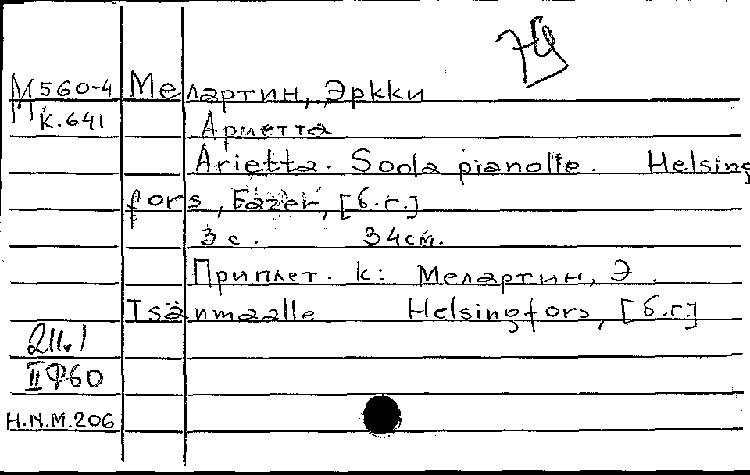 М560-4 Мелартин, Эркки
К.641
Ариетта
Arietta. Soola pianolle. Helsing
fors, Fazer, [б.г.]
3 с. 34см.
Приплет. к: Мелартин, Э.
Isänmaalle Helsingfors, [б.г.]
211.1
II Ф60
H.N.M.206